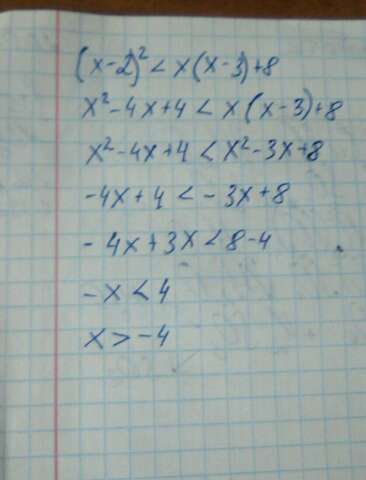 (x-2)² < x(x-3)+8
x²-4x+4 < x(x-3)+8
x²-4x+4 < x²-3x+8
-4x+4 < -3x+8
-4x+3x < 8-4
-x < 4
x > -4